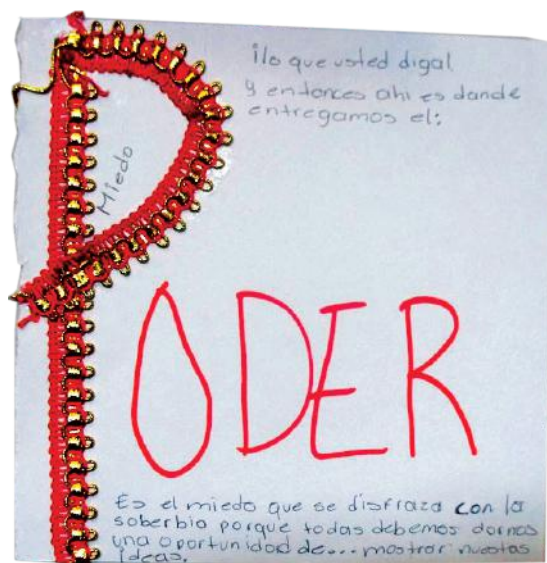 ¡lo que usted diga!
y entonces ahi es dande
entregamos el:
Miedo
PODER
Es el miedo que se disfraza con la
soberbia porque todas debemos darnos
una oportunidad de... mostrar nuestas
ideas.